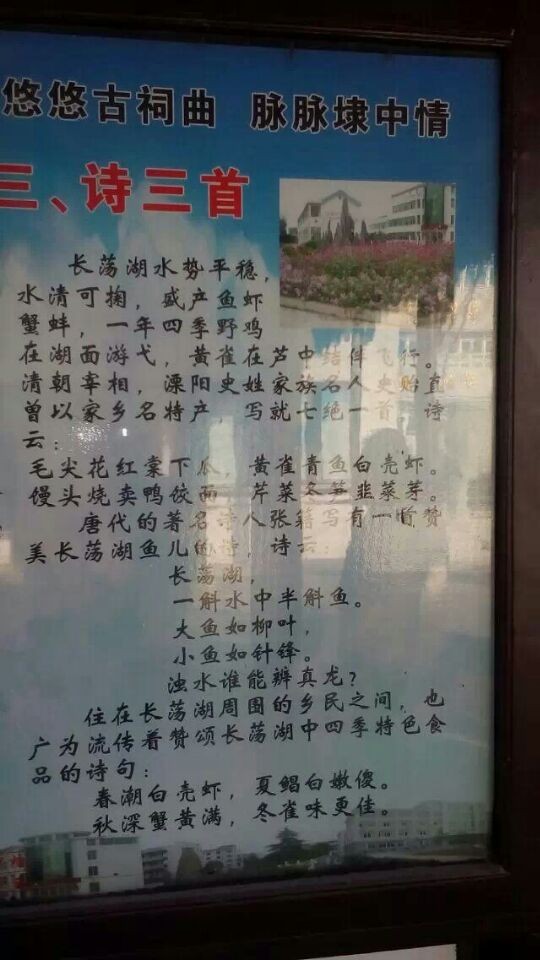 悠悠古祠曲 脉脉埭中情
三、诗三首
长荡湖水势平稳，
水清可掬，盛产鱼虾
蟹蚌，一年四季野鸡
在湖面游弋，黄雀在芦中结伴飞行。
清朝宰相，溧阳史姓家族名人史贻直
曾以家乡名特产，写就七绝一首 诗
云：
毛尖花红棠下瓜，黄雀青鱼白壳虾。
馒头烧卖鸭饺面，芹菜冬笋韭菜芽。
唐代的著名诗人张籍写有一首赞
美长荡湖鱼儿的诗，诗云：
长荡湖，
一斛水中半斛鱼。
大鱼如柳叶，
小鱼如针锋。
浊水谁能辨真龙？
住在长荡湖周围的乡民之间，也
广为流传着赞颂长荡湖中四季特色食
品的诗句：
春潮白壳虾，夏鲳白嫩傻。
秋深蟹黄满，冬雀味更佳。